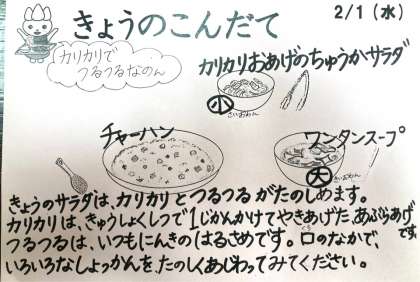 きょうのこんだて
2/1(水)
カリカリで
つるつるなのん
カリカリおあげのちゅうかサラダ
小
さいおわん
チャーハン
ワンタンスープ
大
さいおわん
きょうのサラダは、カリカリとつるつるがたのしめます。
カリカリは、きゅうしょくしつで1じかんかけてやきあげた、あぶらあげです
つるつるは、いつもにんきのはるさめです。口のなかで、
くち
いろいろなしょっかんを、たのしくあじわってみてください。